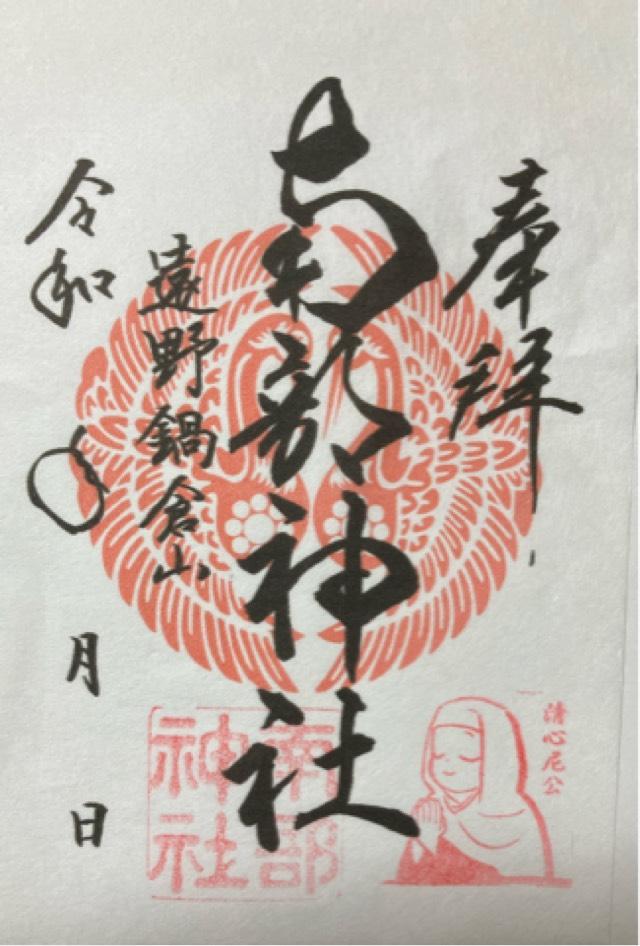 奉拝
南部神社
遠野鍋倉山
令和〇月日
南部
神社
清心尼公